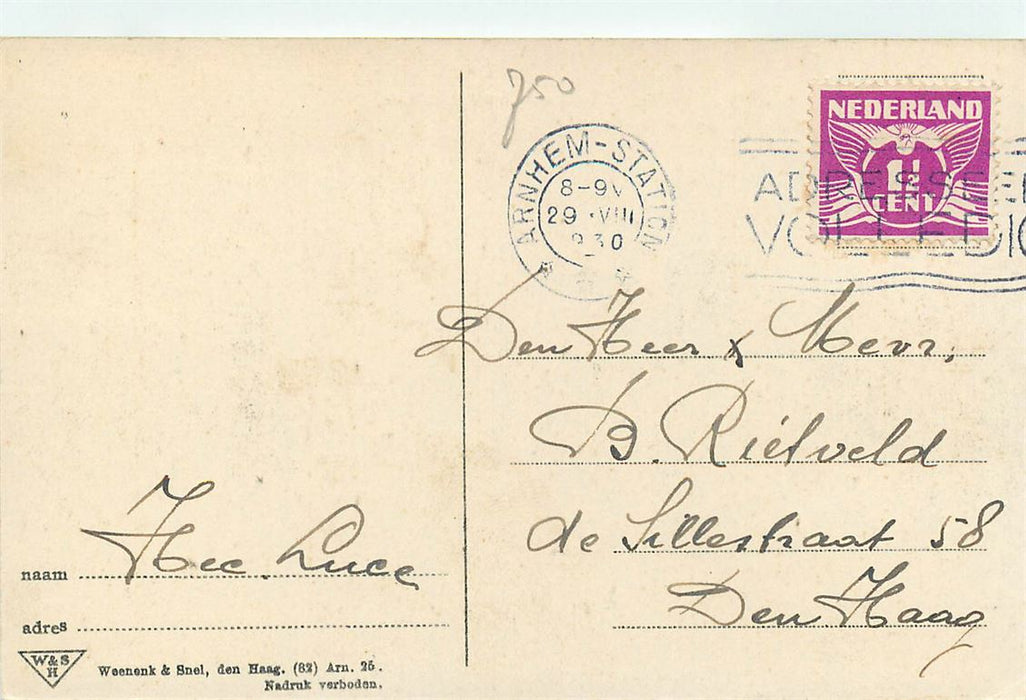 750
ARNHEM-STATION
8-9V
29 VIII
1930
NEDERLAND
1½
CENT
ADRESSEE
VOLLEDIG
Den Heer & Mevr.
B. Rietveld
de Sillestraat 58
Den Haag
naam Luce
adres
W&S
H
Weenenk & Snel, den Haag. (82) Arn. 25.
Nadruk verboden.